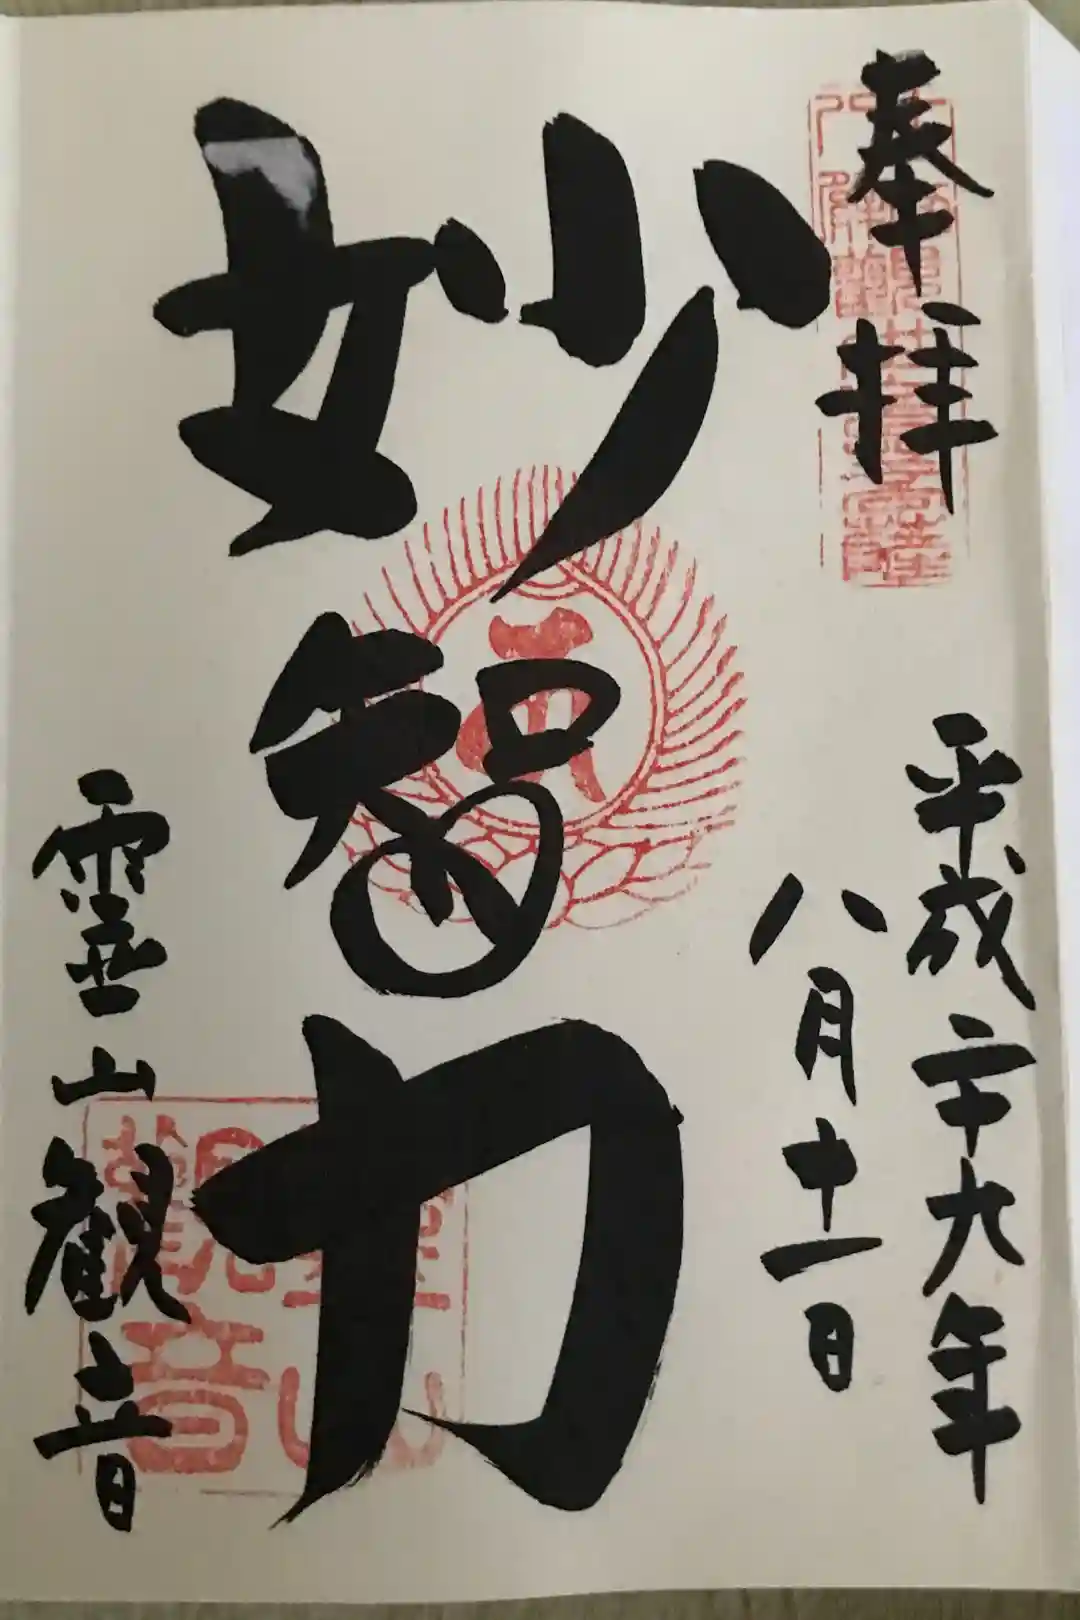 奉拝
平成二十九年
八月十一日
妙智力
霊山観音
霊山観音